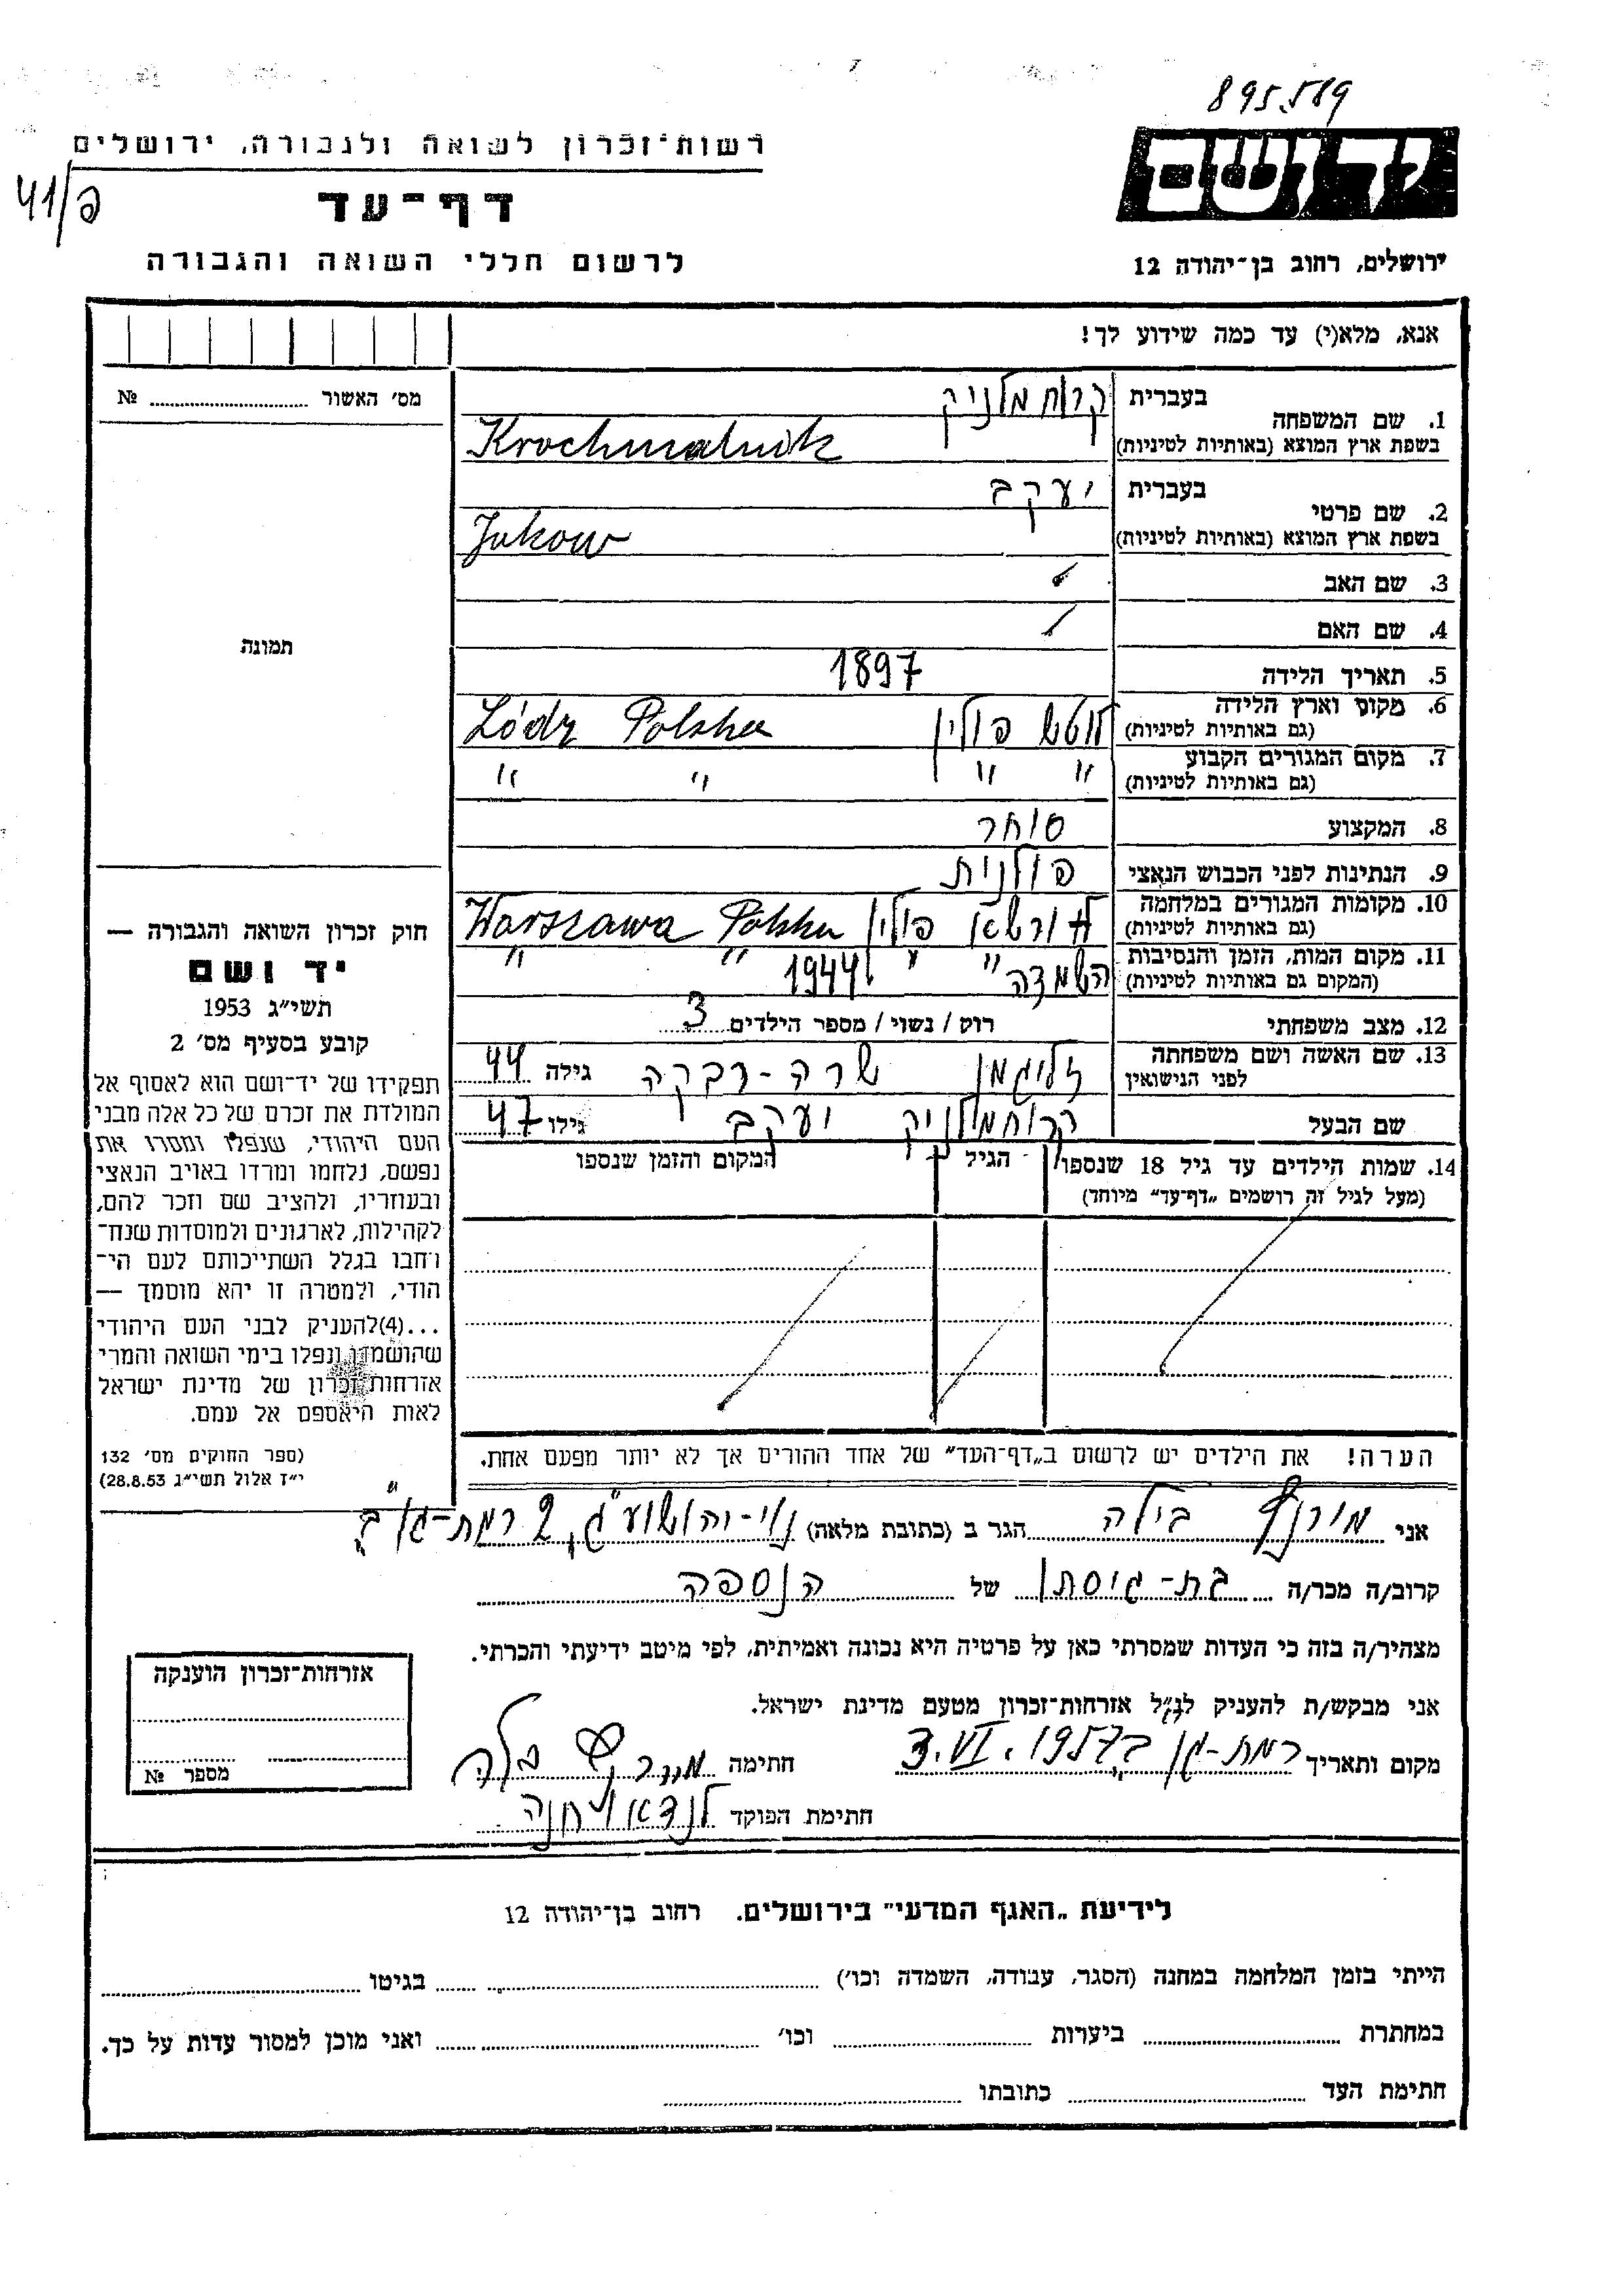 895.519
יד ושם
רשות־זכרון לשואה ולגבורה, ירושלים
41/פ
דף־עד
ירושלים, רחוב בן־יהודה 12
לרשום חללי השואה והגבורה
אנא, מלא(י) עד כמה שידוע לך!
מס׳ האשור № ....................
1. שם המשפחה
בעברית קרוחמלניק
בשפת ארץ המוצא (באותיות לטיניות) Krochmalnik
2. שם פרטי
בעברית יעקב
בשפת ארץ המוצא (באותיות לטיניות) Jakow
3. שם האב
4. שם האם
תמונה
5. תאריך הלידה 1897
6. מקום וארץ הלידה לודש פולין Łódz Polska
(גם באותיות לטיניות)
7. מקום המגורים הקבוע " " " "
(גם באותיות לטיניות)
8. המקצוע סוחר
9. הנתינות לפני הכבוש הנאצי פולנית
10. מקומות המגורים במלחמה ורשא פולין Warszawa Polska
(גם באותיות לטיניות)
11. מקום המות, הזמן והנסיבות " " " "
(המקום גם באותיות לטיניות) השמדה 1944
12. מצב משפחתי רוק / נשוי / מספר הילדים 3
13. שם האשה ושם משפחתה
לפני הנישואין זליגמן שרה-רבקה גילה 44
שם הבעל קרוחמלניק יעקב גילו 47
14. שמות הילדים עד גיל 18 שנספו הגיל המקום והזמן שנספו
(מעל לגיל זה רושמים „דף־עד״ מיוחד)
הערה! את הילדים יש לרשום ב„דף־העד״ של אחד ההורים אך לא יותר מפעם אחת.
חוק זכרון השואה והגבורה —
יד ושם
תשי״ג 1953
קובע בסעיף מס׳ 2
תפקידו של יד־ושם הוא לאסוף אל
המולדת את זכרם של כל אלה מבני
העם היהודי, שנפלו ומסרו את
נפשם, נלחמו ומרדו באויב הנאצי
ובעוזריו, ולהציב שם וזכר להם,
לקהילות, לארגונים ולמוסדות שנח־
רחבו בגלל השתייכותם לעם הי־
הודי, ולמטרה זו יהא מוסמך —
...(4)להעניק לבני העם היהודי
שהושמדו ונפלו בימי השואה והמרי
אזרחות־זכרון של מדינת ישראל
לאות היאספם אל עמם.
(ספר החוקים מס׳ 132
י״ז אלול תשי״ג 28.8.53)
אני בילה הגר ב (כתובת מלאה) נוי-יהושע ג, 2 רמת-גן ב
קרוב/ה מכר/ה בת-גיסתו של הנספה
מצהיר/ה בזה כי העדות שמסרתי כאן על פרטיה היא נכונה ואמיתית, לפי מיטב ידיעתי והכרתי.
אני מבקש/ת להעניק לנ״ל אזרחות־זכרון מטעם מדינת ישראל.
מקום ותאריך רמת-גן ב 3.VI.1957 חתימה בלה
חתימת הפוקד לנדאו חנה
אזרחות־זכרון הוענקה
מספר №
לידיעת „האגף המדעי״ בירושלים. רחוב בן־יהודה 12
הייתי בזמן המלחמה במחנה (הסגר, עבודה, השמדה וכו׳) .................... בגיטו ....................
במחתרת .................... ביערות .................... וכו׳ .................... ואני מוכן למסור עדות על כך.
חתימת העד .................... כתובתו ....................